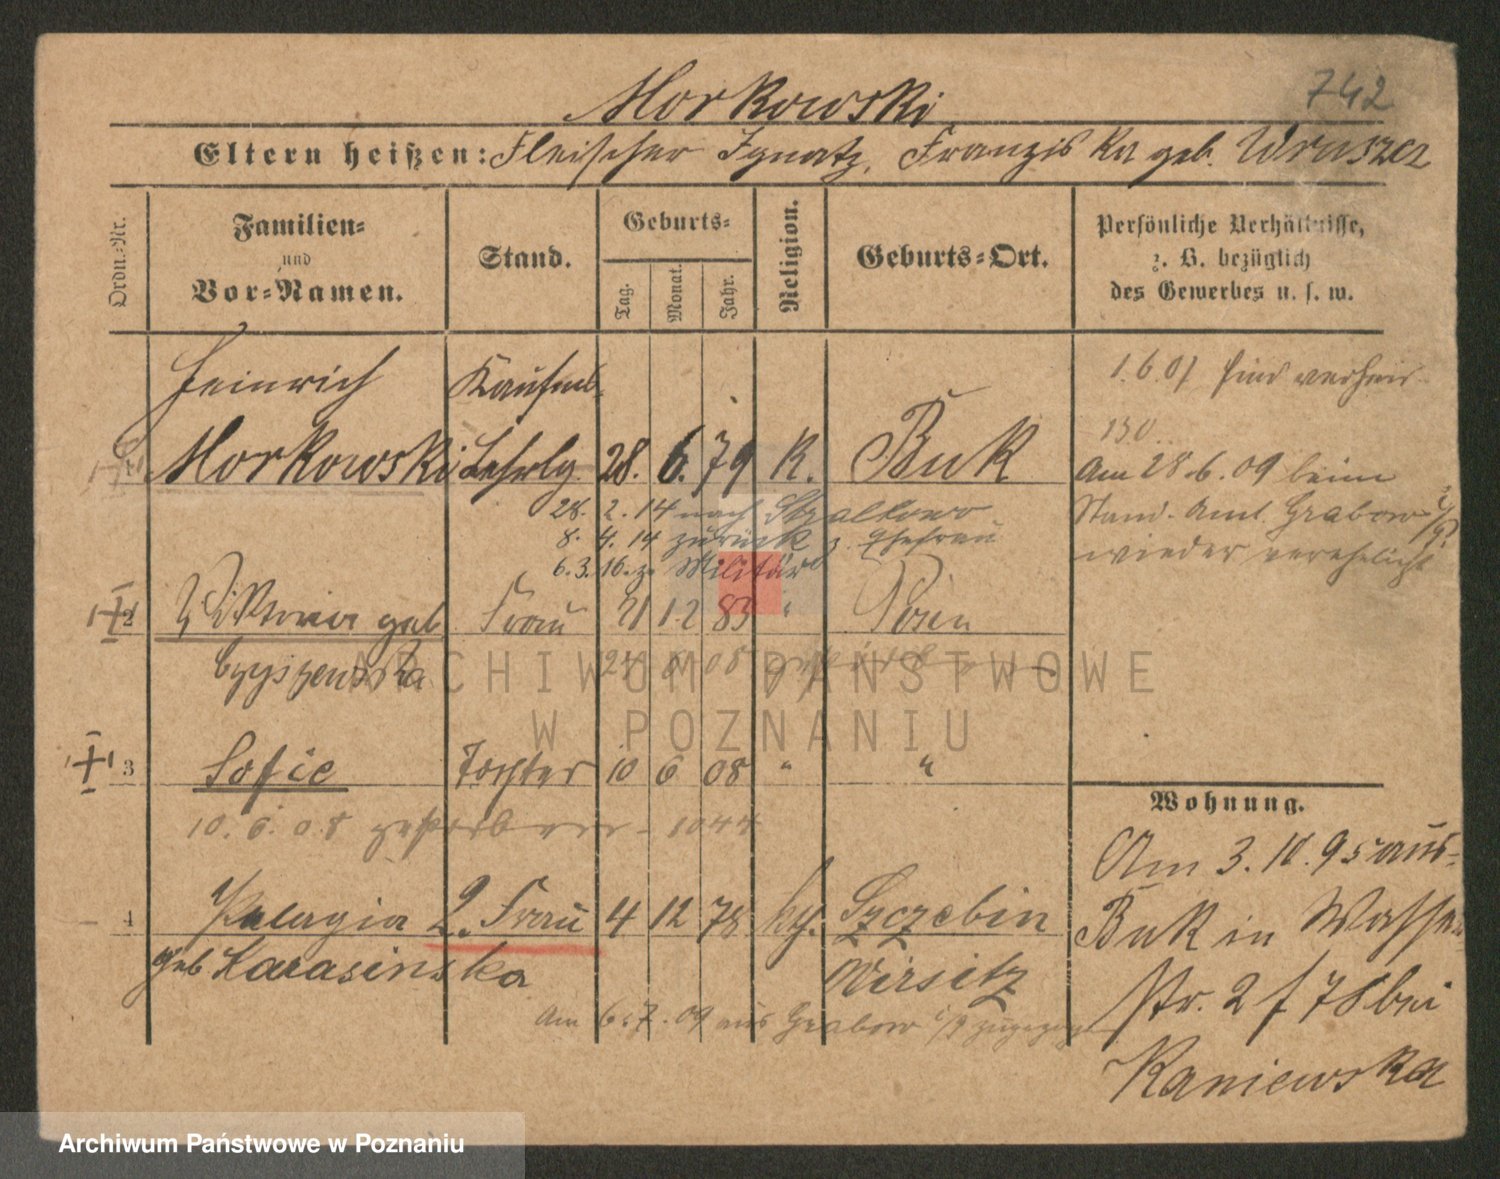 742
Morkowski
Eltern heißen: Fleischer Ignatz, Franziska geb. Wruszcz
Ordn.-Nr.
Familien- und Vor-Namen.
Stand.
Geburts-
Tag. Monat. Jahr.
Religion.
Geburts-Ort.
Persönliche Verhältnisse,
z. B. bezüglich
des Gewerbes u. s. w.
Heinrich Kaufm.
1.6.01
Morkowski Lehrlg. 28. 6. 79 K. Buk
Am 28.6.09 beim
Stand. Amt. Grabow
wieder verehelicht
28. 2. 14 nach Stralkowo
8. 4. 14 zurück z. Ehefrau
6. 3. 16. z. Militär
2 Viktoria geb Frau 21 12 83 " Posen
08
3 Sofie Tochter 10 6 08 " "
10. 6. 08 gestorben - 1044
4 Pelagia 2. Frau 4 12 78 kth. Szczebin
geb Karasinska Wirsitz
Am 6.7.09 aus Grabow zugezogen
Wohnung.
Am 3.10.95 aus-
Buk in Wasser
str. 2 f 78 bei
Kaniewska
ARCHIWUM PAŃSTWOWE
W POZNANIU
Archiwum Państwowe w Poznaniu